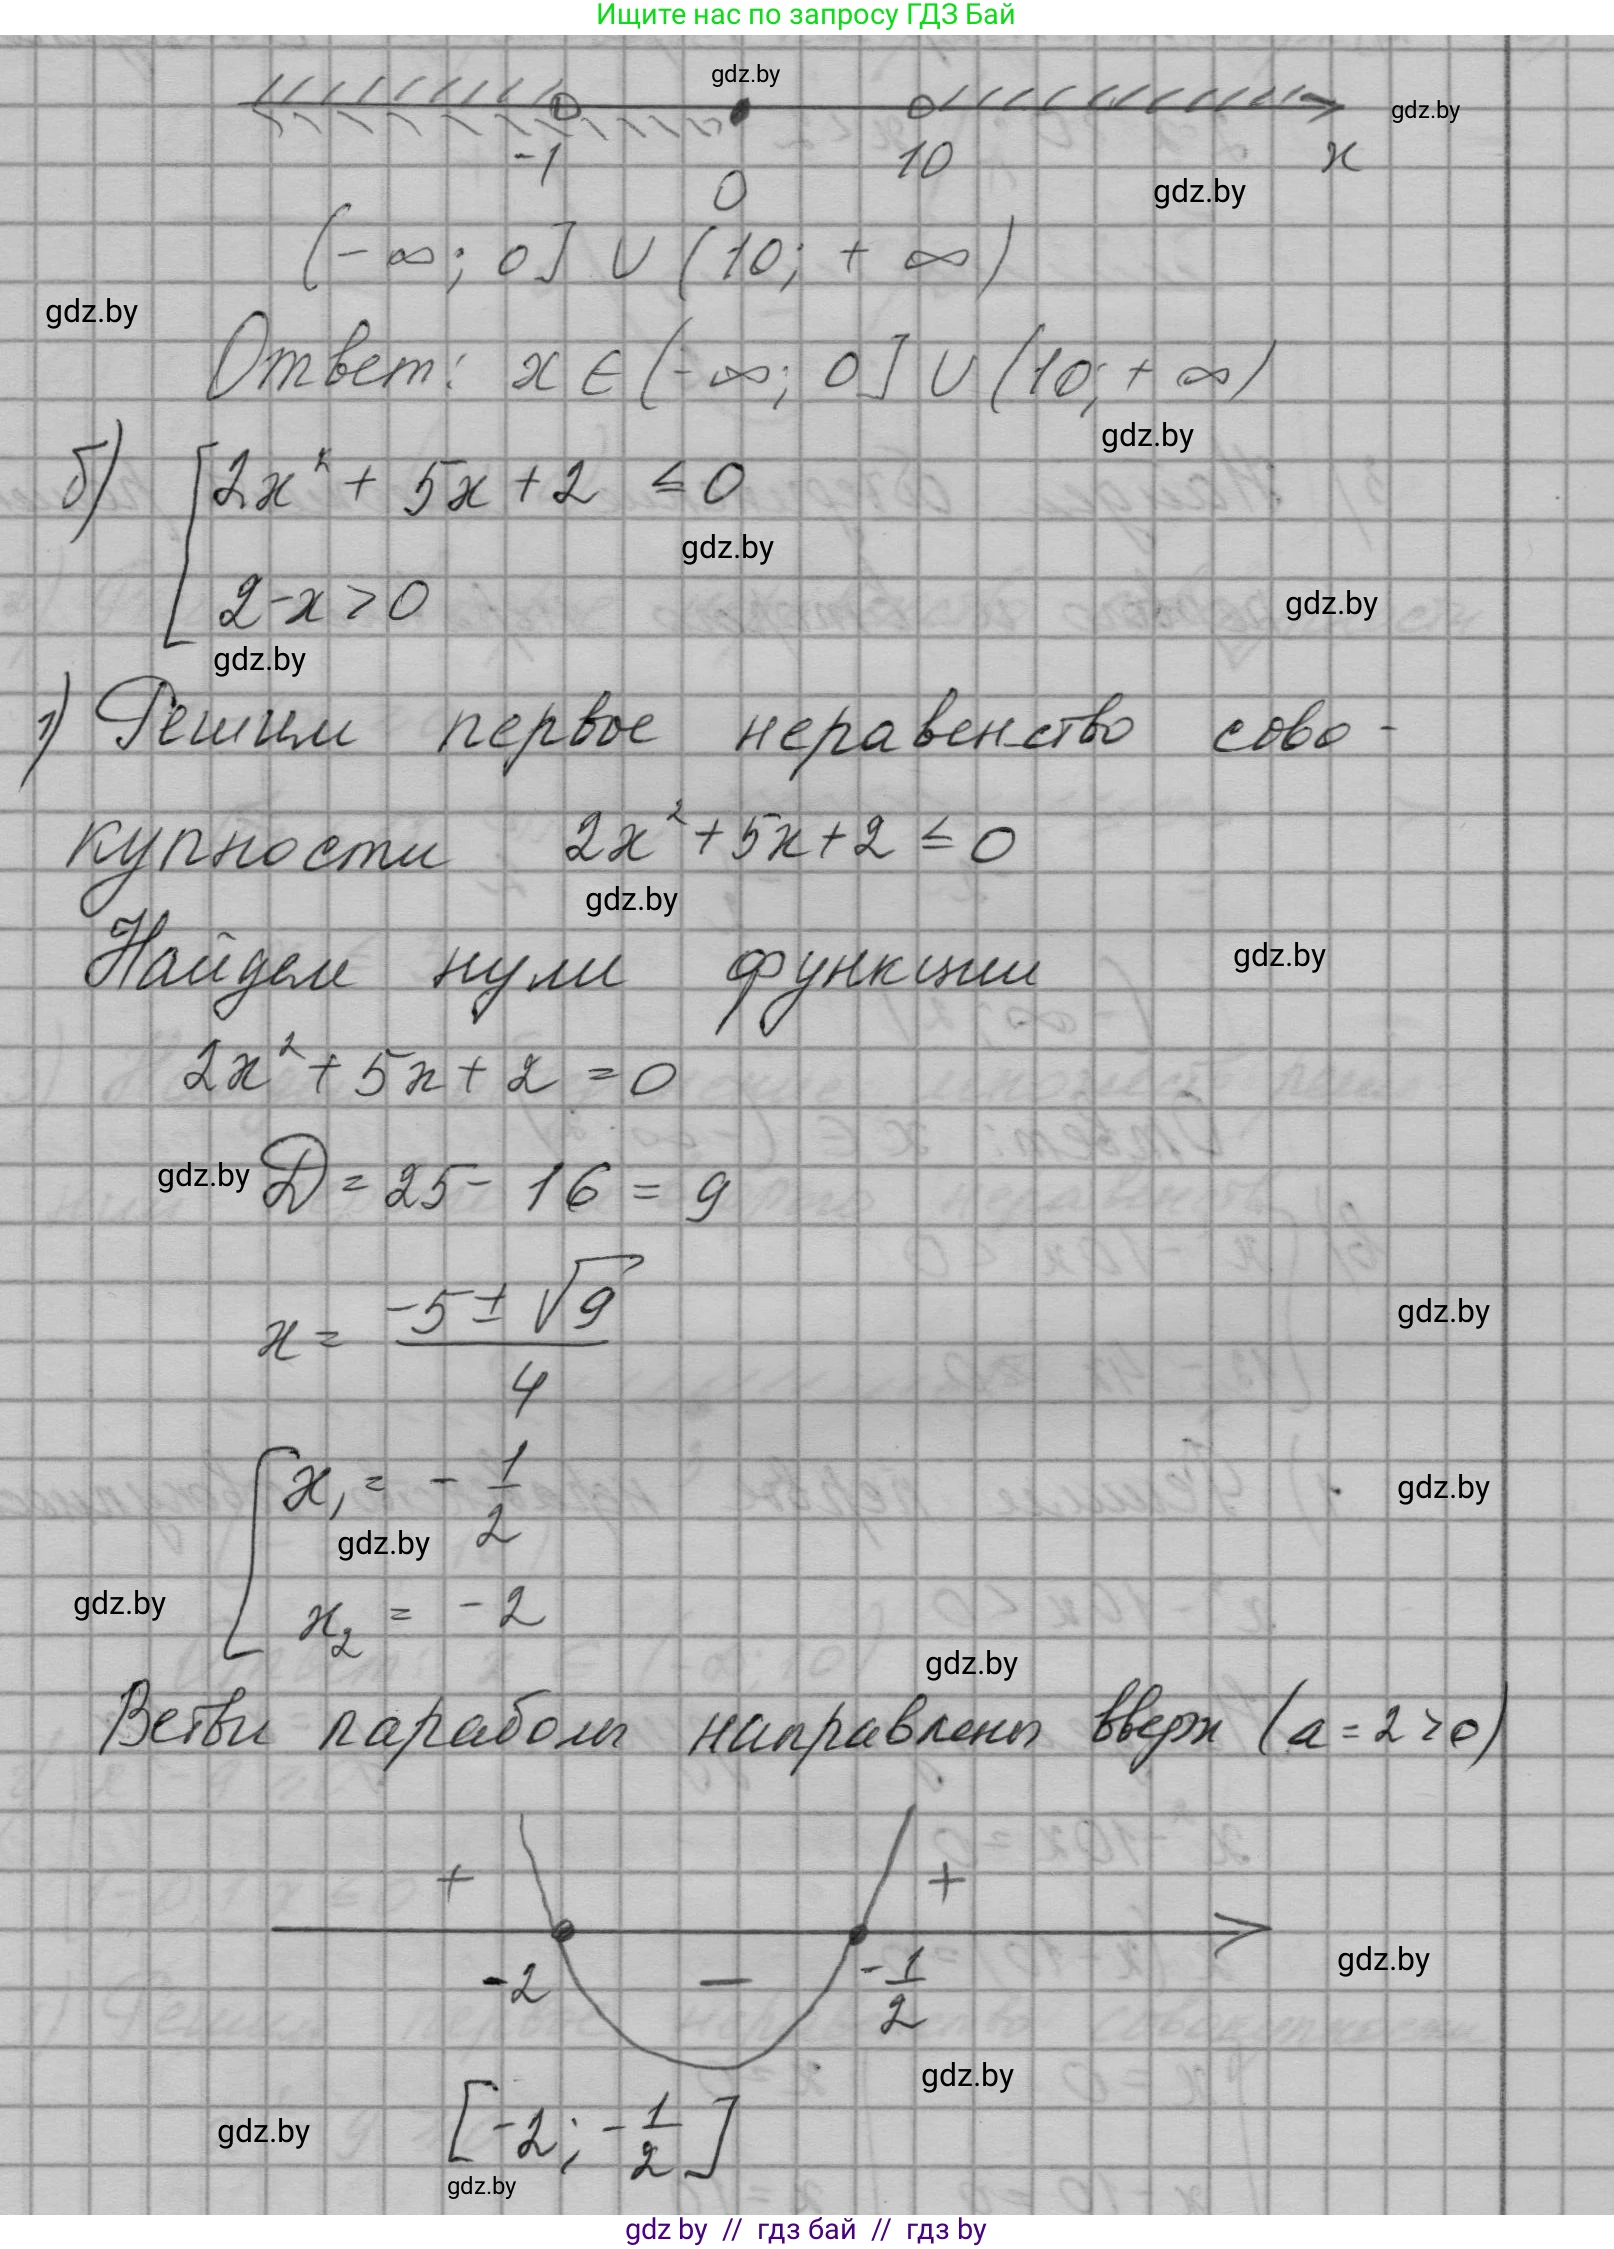 Ищите нас по запросу ГДЗ Бай
gdz.by
gdz.by
-1 0 10 x
gdz.by
(-∞; 0] ∪ (10; +∞)
gdz.by
Ответ: x ∈ (-∞; 0] ∪ (10; +∞)
gdz.by
б) [ 2x² + 5x + 2 ≤ 0
gdz.by
2-x > 0
gdz.by
gdz.by
1) Решим первое неравенство сово-
купности 2x² + 5x + 2 ≤ 0
gdz.by
Найдем нули функции
gdz.by
2x² + 5x + 2 = 0
gdz.by
D = 25 - 16 = 9
x = (-5 ± √9)/4
gdz.by
[ x₁ = -1/2
gdz.by
gdz.by
x₂ = -2
gdz.by
gdz.by
Ветви параболы направлены вверх (a = 2 > 0)
+ +
-2 − -1/2
gdz.by
gdz.by
[-2; -1/2]
gdz.by
gdz.by
gdz by // гдз бай // гдз by